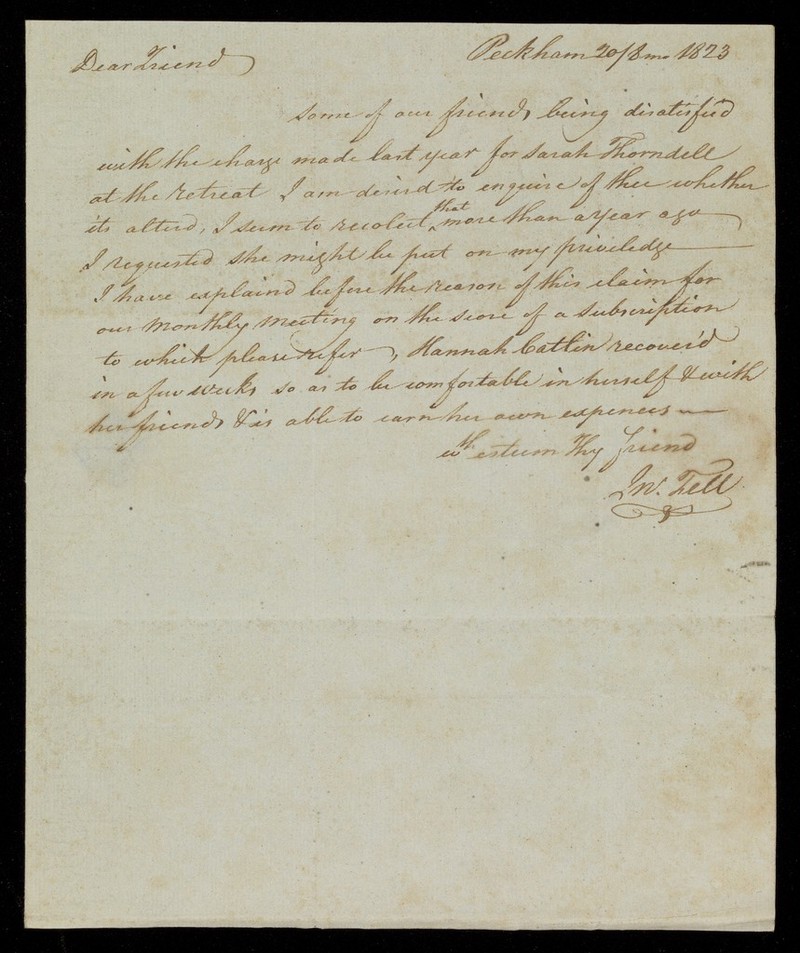 Peckham 20/8mo 1823
Dear Friend
Some of our friends being disatisfied
with the charge made last year for Sarah Thorndell
at the Retreat I am desird to enquire of thee whether
its alterd, I seem to recolect that more than a year ago
I requested she might be put on my priviledge
I have explaind before the reason of this claim for
our Monthly Meeting on the score of a Subscription
to which please refer, Hannah Catlin recover'd
in a few weeks so as to be comfortable in herself & with
her friends & is able to earn her own expences
wth esteem Thy friend
Jno. Fell